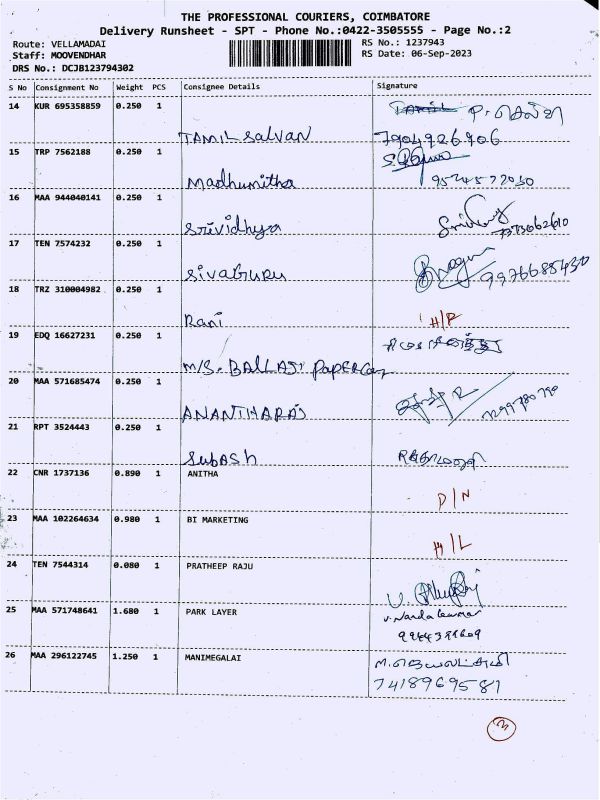 THE PROFESSIONAL COURIERS, COIMBATORE
Delivery Runsheet - SPT - Phone No.:0422-3505555 - Page No.:2
Route: VELLAMADAI RS No.: 1237943
Staff: MOOVENDHAR RS Date: 06-Sep-2023
DRS No.: DCJB123794302
S No Consignment No Weight PCS Consignee Details Signature
14 KUR 695358859 0.250 1
TAMIL Salvan 7904926906
15 TRP 7562188 0.250 1
Madhumitha
16 MAA 944040141 0.250 1
Srividhya
17 TEN 7574232 0.250 1
SivaGuru
18 TRZ 310004982 0.250 1
Rani H/R
19 EDQ 16627231 0.250 1
M/S. BALLAJI
20 MAA 571685474 0.250 1
ANANTHARAJ
21 RPT 3524443 0.250 1
SubASH
22 CNR 1737136 0.890 1 ANITHA
D/N
23 MAA 102264634 0.980 1 BI MARKETING
H/L
24 TEN 7544314 0.080 1 PRATHEEP RAJU
25 MAA 571748641 1.680 1 PARK LAYER
26 MAA 296122745 1.250 1 MANIMEGALAI
7418969581